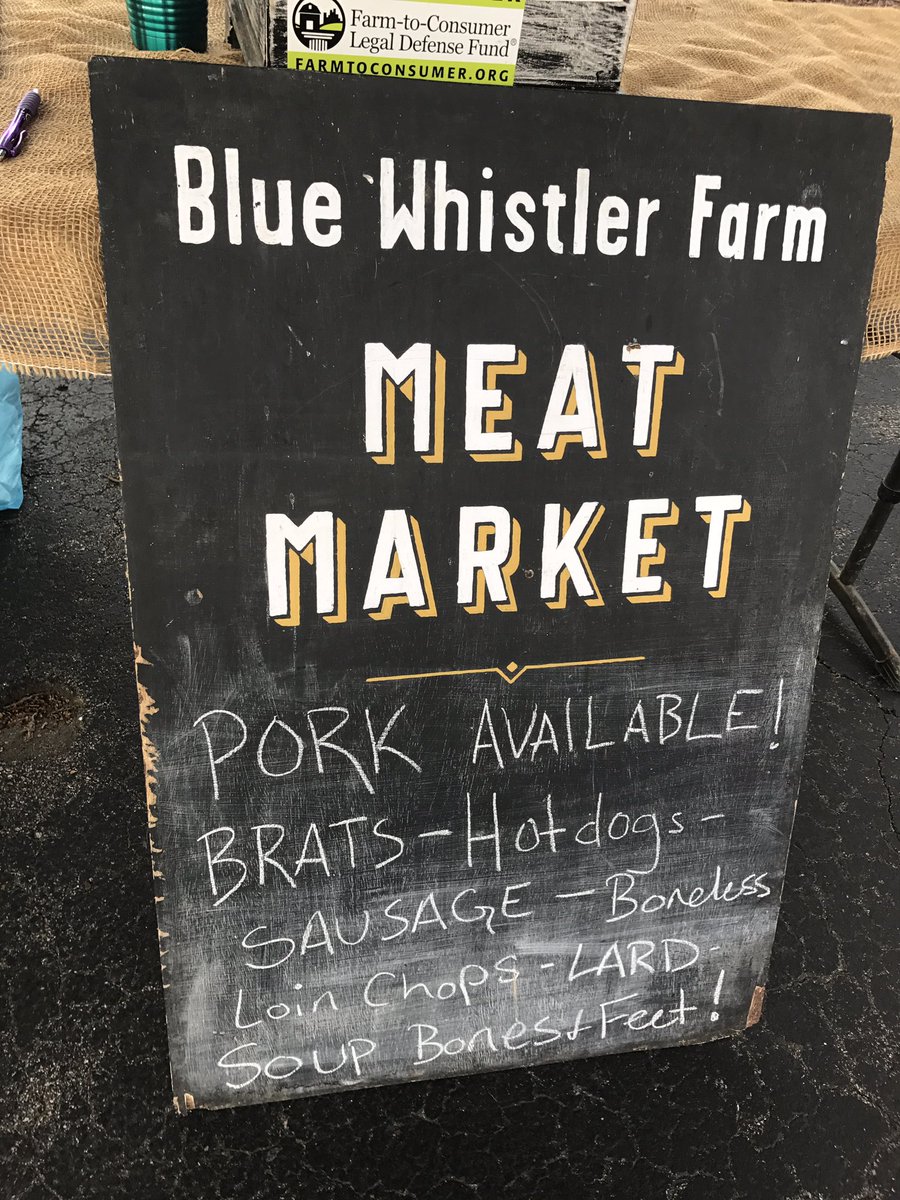 Farm-to-Consumer
Legal Defense Fund®
FARMTOCONSUMER.ORG
Blue Whistler Farm
MEAT
MARKET
PORK AVAILABLE!
BRATS-Hotdogs-
SAUSAGE-Boneless
Loin Chops-LARD-
Soup Bones+Feet!